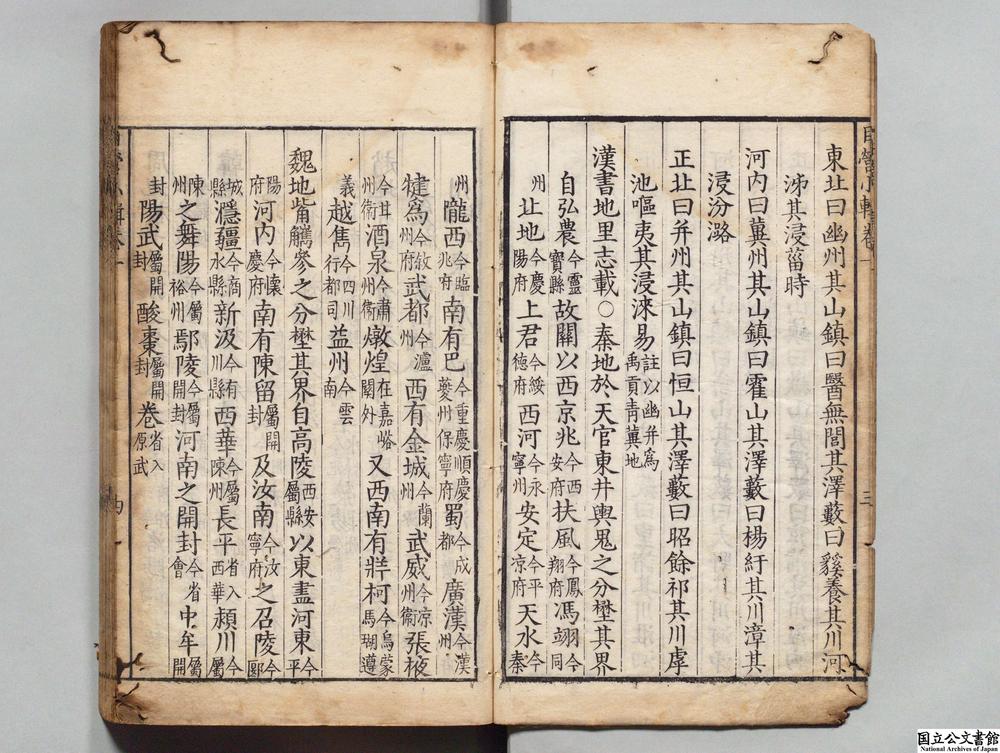 目營小輯卷一 三
東北曰幽州其山鎮曰醫無閭其澤藪曰貕養其川河
泲其浸菑時
河內曰冀州其山鎮曰霍山其澤藪曰楊紆其川漳其
浸汾潞
正北曰并州其山鎮曰恒山其澤藪曰昭餘祁其川虖
池嘔夷其浸淶易註以幽并爲禹貢青冀地
漢書地里志載○秦地於天官東井輿鬼之分壄其界
自弘農今靈寶縣故關以西京兆今西安府扶風今鳳翔府馮翊今同
州北地今慶陽府上君今綏德府西河今永寧州安定今平凉府天水今秦
州隴西今臨兆府南有巴今重慶順慶夔州保寧府蜀今成都廣漢今漢州
犍爲今敘州府武都今瀘州西有金城今蘭州武威今凉州衛張掖
今甘州衛酒泉今肅州衛燉煌在嘉峪關外又西南有牂柯今烏蒙馬瑚遵
義越雋今四川行都司益州今雲南
魏地觜觿參之分壄其界自高陵西安屬縣以東盡河東今平
陽府河內今懷慶府南有陳留屬開封及汝南今汝寧府之召陵今郾
城縣㶏疆今商永縣新汲今有川縣西華今屬陳州長平省入西華潁川今屬
陳州之舞陽今屬裕州鄢陵今屬開封河南之開封今省會中牟屬開
封陽武屬開封酸棗屬開封卷省入原武
目營小輯卷一 四
国立公文書館
National Archives of Japan